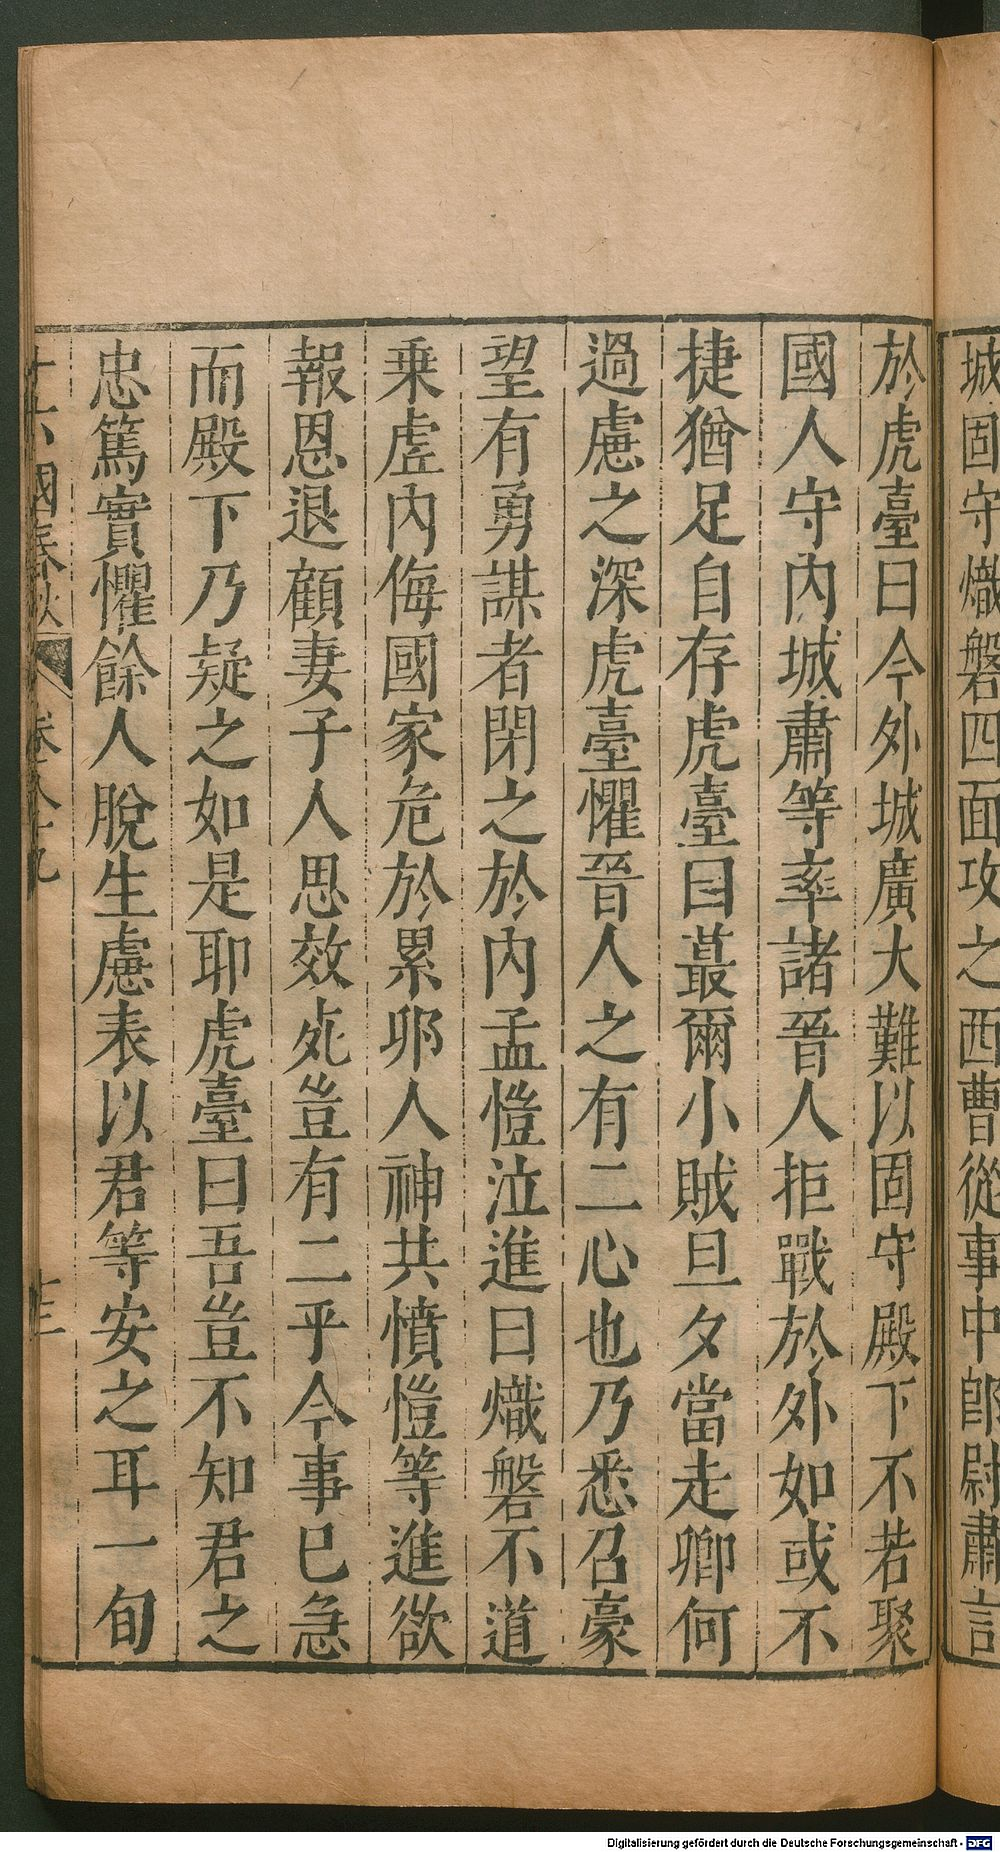 城固守熾磐四面攻之西曹從事中郎尉肅言
於虎臺曰今外城廣大難以固守殿下不若聚
國人守內城肅等率諸晉人拒戰於外如或不
捷猶足自存虎臺曰蕞爾小賊旦夕當走卿何
過慮之深虎臺懼晉人之有二心也乃悉召豪
望有勇謀者閉之於內孟愷泣進曰熾磐不道
乗虛內侮國家危於累卵人神共憤愷等進欲
報恩退顧妻子人思效死豈有二乎今事已急
而殿下乃疑之如是耶虎臺曰吾豈不知君之
忠篤實懼餘人脫生慮表以君等安之耳一旬
十六國春秋 卷八十九 十三
Digitalisierung gefördert durch die Deutsche Forschungsgemeinschaft - DFG